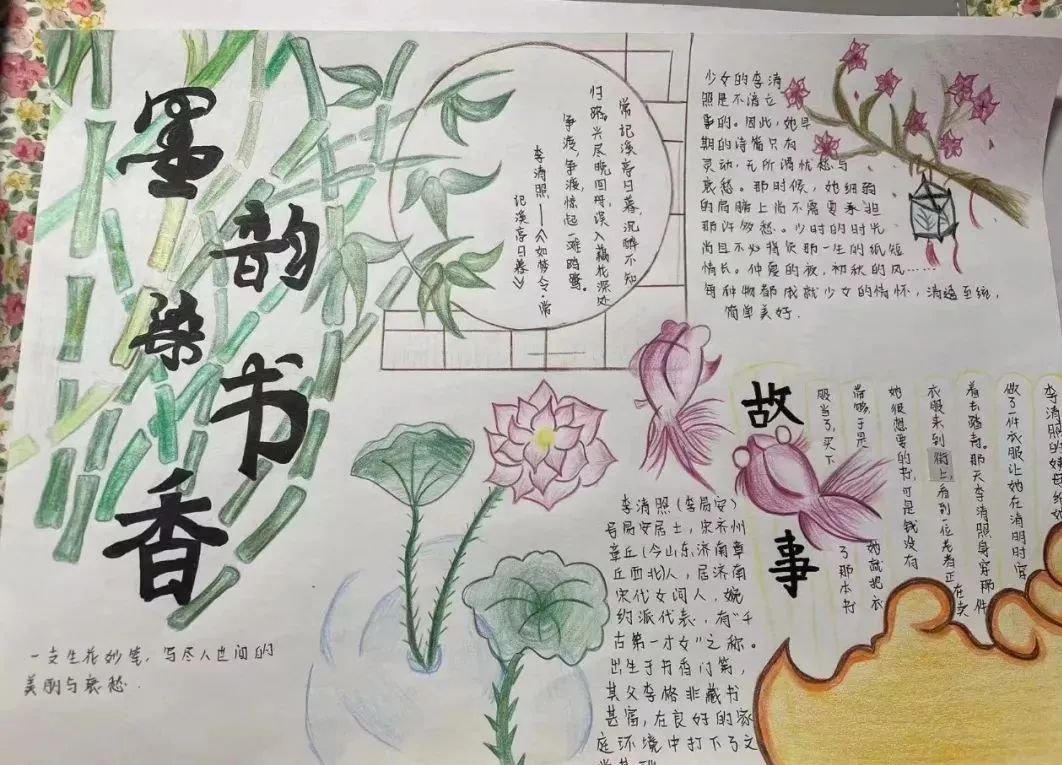 墨韵染书香
一支生花妙笔,写尽人世间的
美丽与哀愁.
常记溪亭日暮,沉醉不知
归路,兴尽晚回舟,误入藕花深处
争渡,争渡,惊起一滩鸥鹭。
李清照——《如梦令·常
记溪亭日暮》
少女的李清
照是不谙立
事的。因此,她早
期的诗篇只有
灵动,无所谓忧愁与
哀愁。那时候,她细弱
的肩膀上尚不需要承担
那许多愁。少时的时光
尚且不必背负那一生的纸短
情长。仲夏的夜,初秋的风……
每种物都成就少女的情怀,清透至纯,
简单美好.
故事
李清照的姨母给她
做了件衣服让她在清明时穿
着去踏青。那天李清照身穿那件
衣服来到街上,看到一位老者正在卖
她很想要的书,可是钱没有
带够,于是她就把衣
服当了,买下了那本书
李清照(李易安)
号易安居士,宋齐州
章丘(今山东济南章
丘西北)人,居济南
宋代女词人,婉
约派代表,有“千
古第一才女”之称。
出生于书香门第,
其父李格非藏书
甚富,在良好的家
庭环境中打下了文